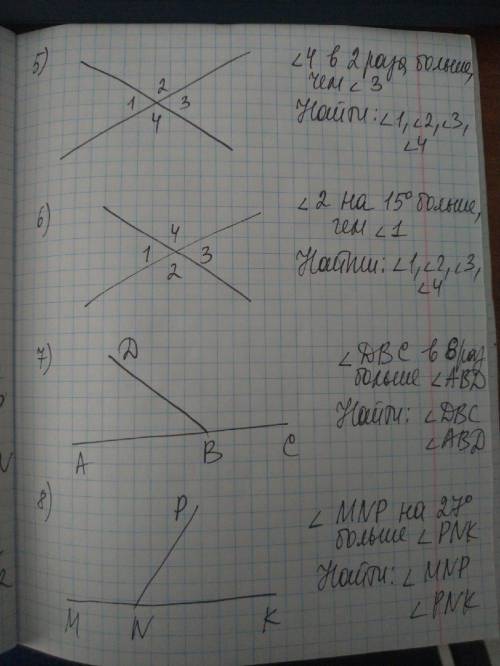 5)
2
1 3
4
∠4 в 2 раза больше,
чем ∠3
Найти: ∠1, ∠2, ∠3,
∠4
6)
4
1 3
2
∠2 на 15° больше,
чем ∠1
Найти: ∠1, ∠2, ∠3,
∠4
7)
D
A B C
∠DBC в 8 раз
больше ∠ABD
Найти: ∠DBC
∠ABD
8)
P
M N K
∠MNP на 27°
больше ∠PNK
Найти: ∠MNP
∠PNK